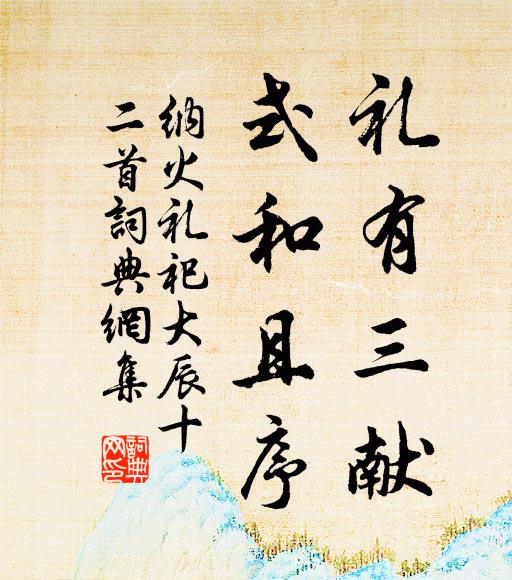 礼有三献
式和且序
纳火礼祀大辰十
二首詞典網集
詞典网印